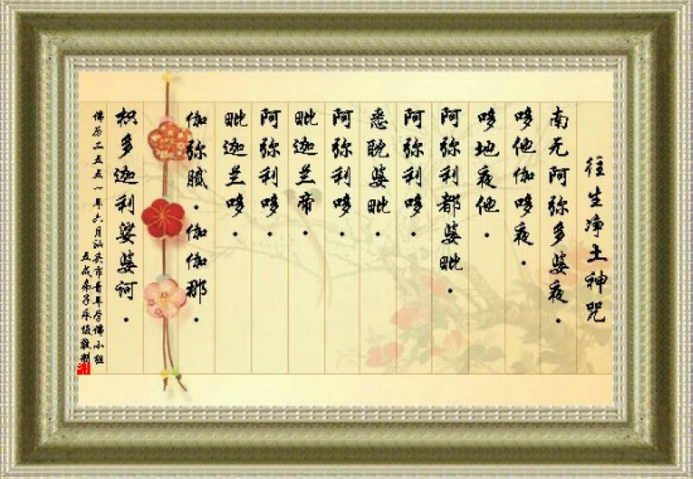 往生净土神咒
南无阿弥多婆夜·
哆他伽哆夜·
哆地夜他·
阿弥利都婆毗·
阿弥利哆·
悉耽婆毗·
阿弥利哆·
毗迦兰帝·
阿弥利哆·
毗迦兰哆·
伽弥腻·伽伽那·
枳多迦利娑婆诃·
佛历二五五一年六月汕头市青年学佛小组